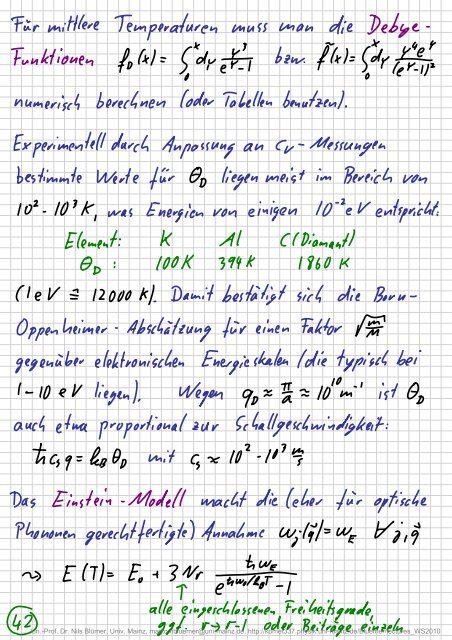 Für mittlere Temperaturen muss man die Debye-
Funktionen f_D(x) = ∫₀ˣ dy y³/(e^y-1) bzw. f̃(x) = ∫₀ˣ dy y⁴e^y/(e^y-1)²
numerisch berechnen (oder Tabellen benutzen).
Experimentell durch Anpassung an c_V-Messungen
bestimmte Werte für Θ_D liegen meist im Bereich von
10²-10³ K, was Energien von einigen 10⁻² eV entspricht:
Element: K Al C(Diamant)
Θ_D: 100K 394K 1860 K
(1eV ≙ 12000 K). Damit bestätigt sich die Born-
Oppenheimer-Abschätzung für einen Faktor √(m/M)
gegenüber elektronischen Energieskalen (die typisch bei
1-10 eV liegen). Wegen q_D ≈ π/a ≈ 10¹⁰ m⁻¹ ist Θ_D
auch etwa proportional zur Schallgeschwindigkeit:
ħ c_s q = k_B Θ_D mit c_s ≈ 10²-10³ m/s
Das Einstein-Modell macht die (eher für optische
Phononen gerechtfertigte) Annahme ω_j(q⃗) = ω_E ∀ j, q⃗
⇝ E(T) = E₀ + 3Nr ħω_E/(e^(ħω_E/k_BT) - 1)
↑
alle eingeschlossenen Freiheitsgrade,
42 ggf. r → r-1 oder Beiträge einzeln
Prof. Dr. Nils Blümer, Univ. Mainz,